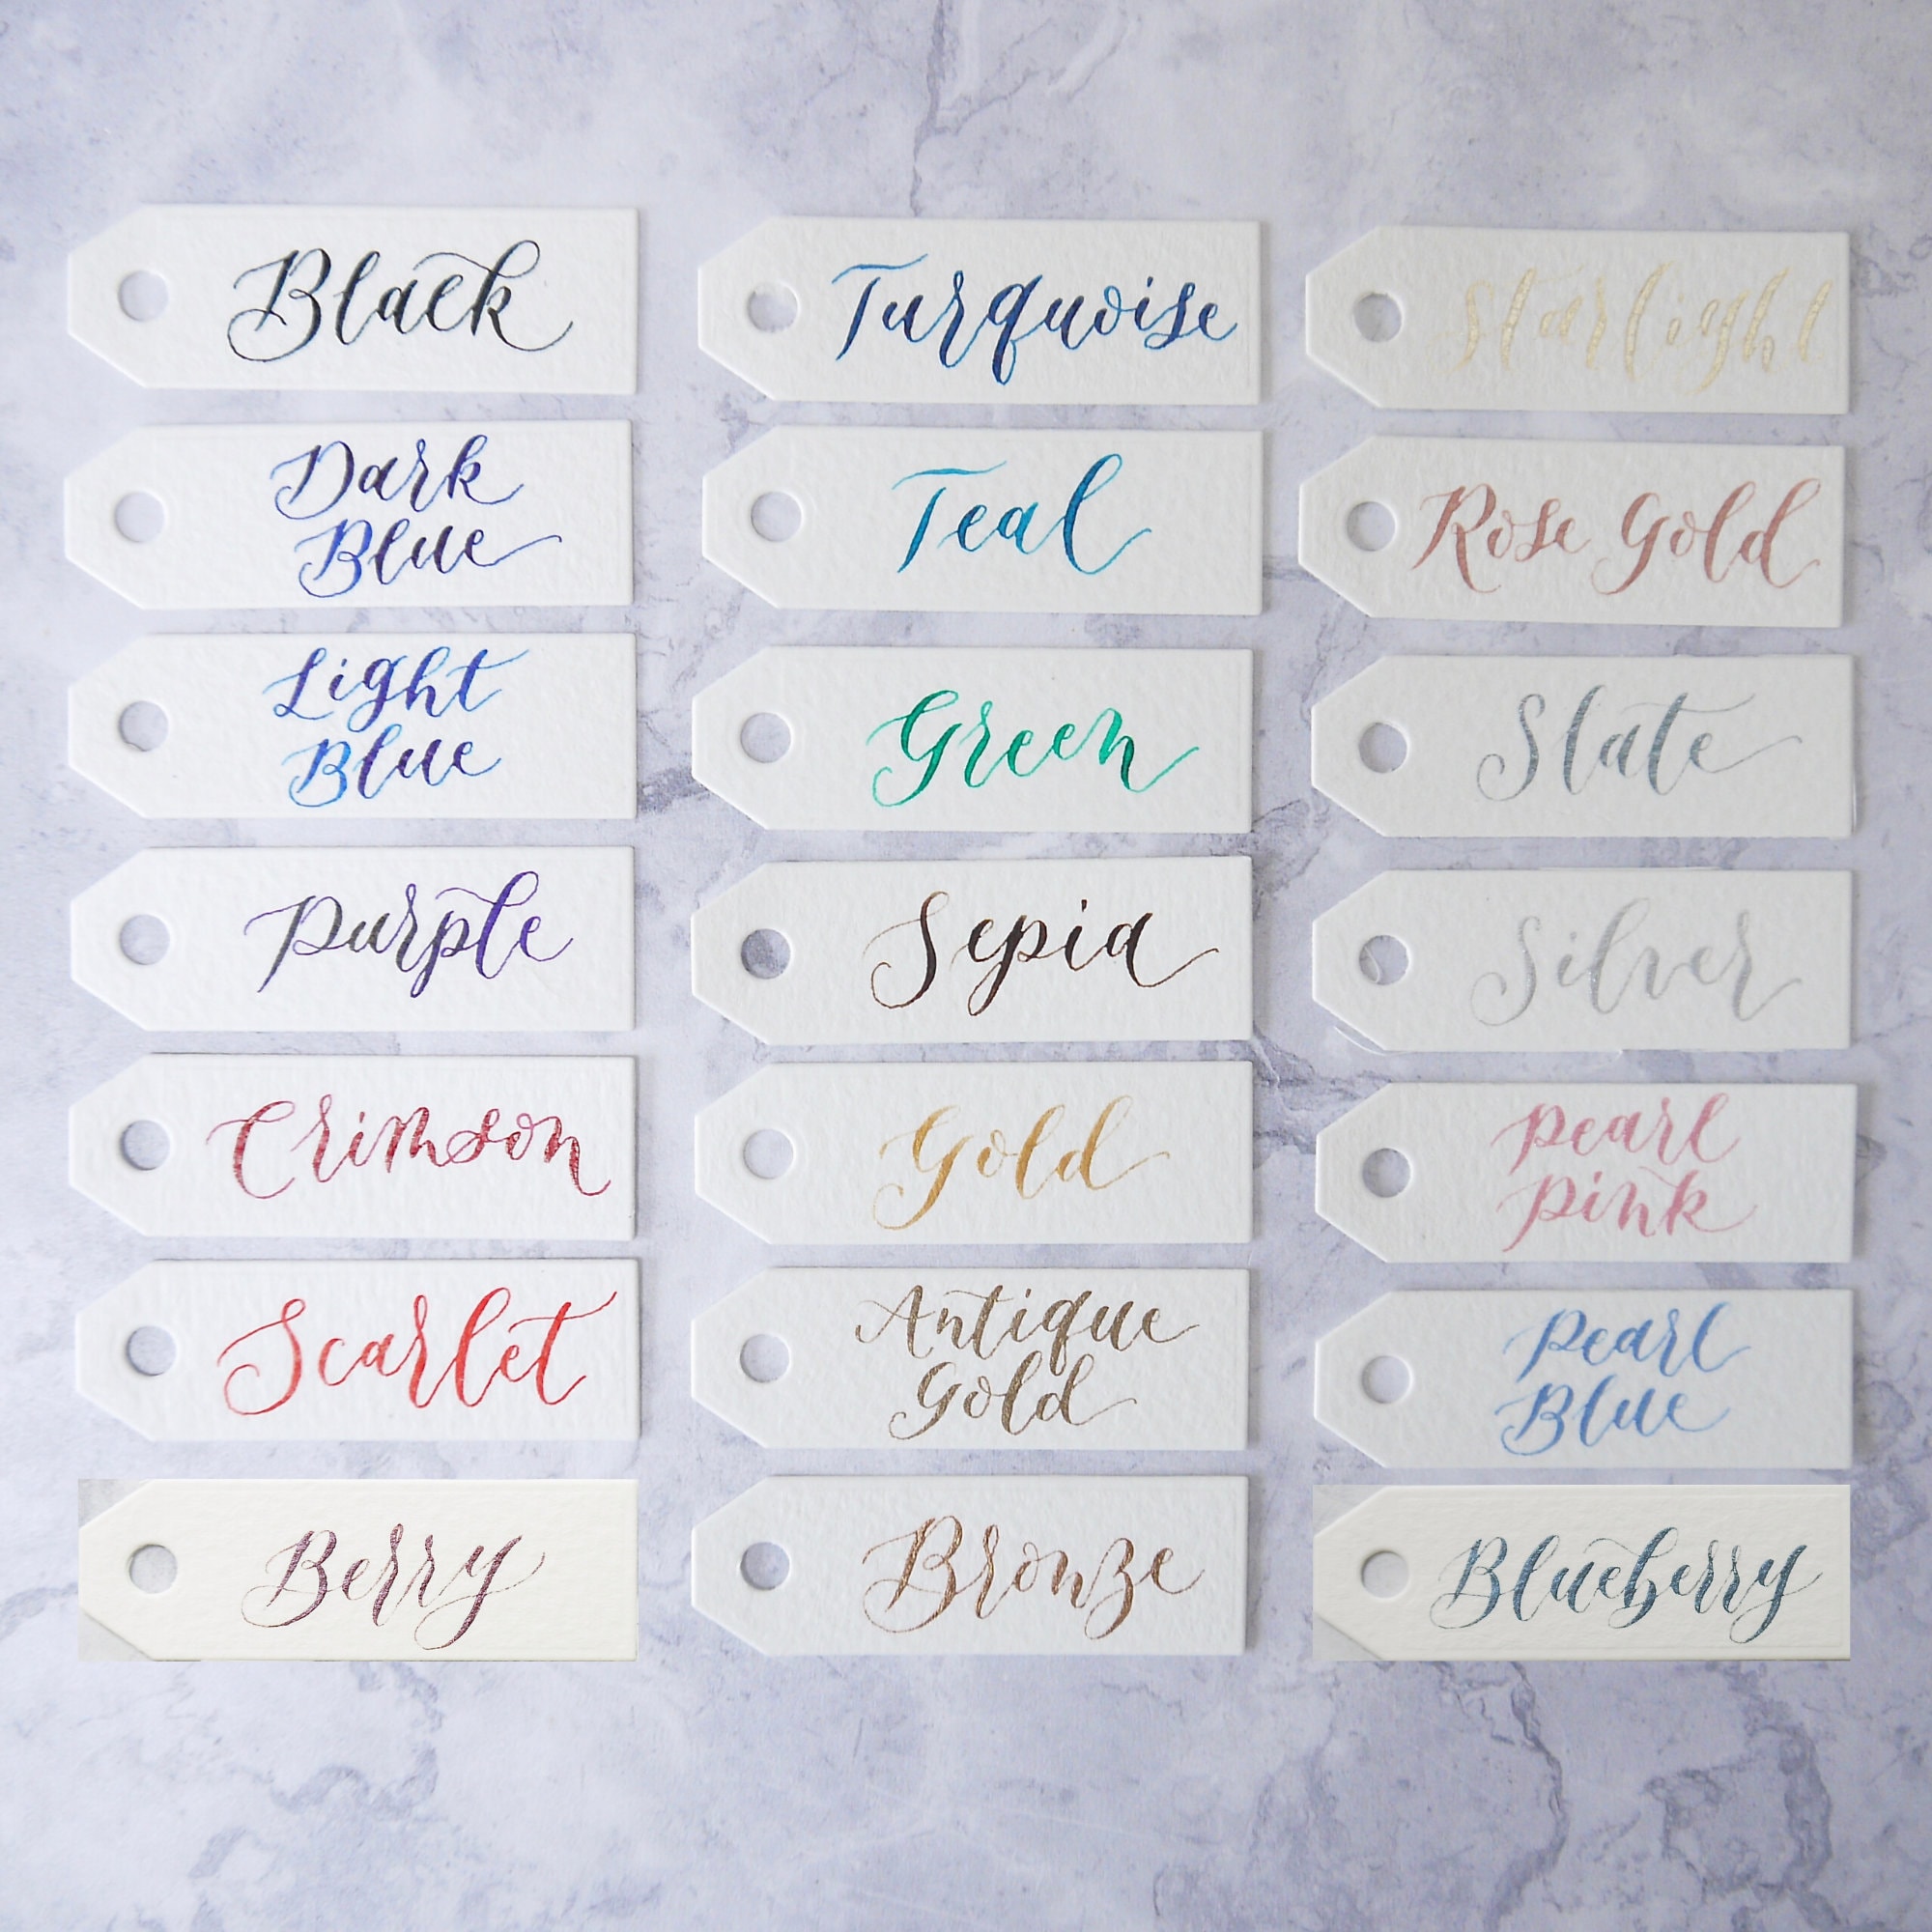 Black
Dark
Blue
Light
Blue
Purple
Crimson
Scarlet
Berry
Turquoise
Teal
Green
Sepia
Gold
Antique
Gold
Bronze
Starlight
Rose Gold
Slate
Silver
Pearl
Pink
Pearl
Blue
Blueberry